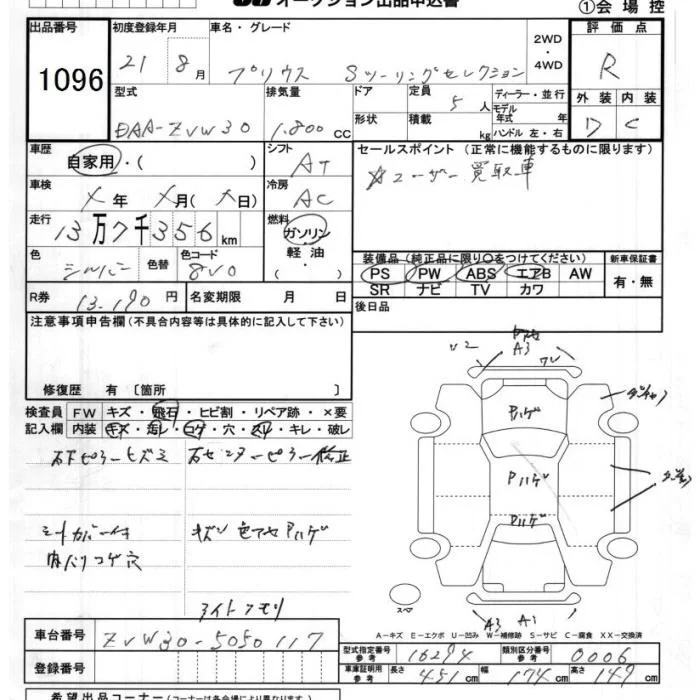 オークション出品申込書
①会場控
出品番号 初度登録年月 車名・グレード 2WD・4WD 評価点
1096 21 8月 プリウス Sツーリングセレクション R
型式 排気量 ドア 定員 5人 ディーラー・並行 外装 内装
DAA-ZVW30 1.800cc 形状 積載 kg モデル年式 年 ハンドル 左・右 D C
車歴 自家用・( ) シフト AT セールスポイント(正常に機能するものに限ります)
車検 X年 X月(X日) 冷房 AC ユーザー買取車
走行 13万7千356km 燃料 ガソリン・軽油・( )
装備品(純正品に限り○をつけてください) 新車保証書
色 シルバー 色替 色コード 8V0 PS PW ABS エアB AW 有・無
SR ナビ TV カワ
R券 13.190円 名変期限 月 日 後日品
注意事項申告欄(不具合内容等は具体的に記入して下さい)
修復歴 有〔箇所 〕
検査員 FW キズ・飛石・ヒビ割・リペア跡・×要
記入欄 内装 キズ・汚レ・コゲ・穴・スリ・キレ・破レ
右下ピラーヒズミ 右センターピラー修正
シートカバー付 キズ 色アセ Pハゲ
内ハリコゲ穴
ライトクモリ
U2 A3 ワレ
Pハゲ
Pハゲ
Pハゲ
スペア
A3 A1
A-キズ E-エクボ U-凹み W-補修跡 S-サビ C-腐食 XX-交換済
車台番号 ZVW30-5050117
型式指定番号 参考 16294 類別区分番号 参考 0006
登録番号
車庫証明用 参考 長さ 451cm 幅 174cm 高さ 149cm
希望出品コーナー(コーナーは各会場により異なります)